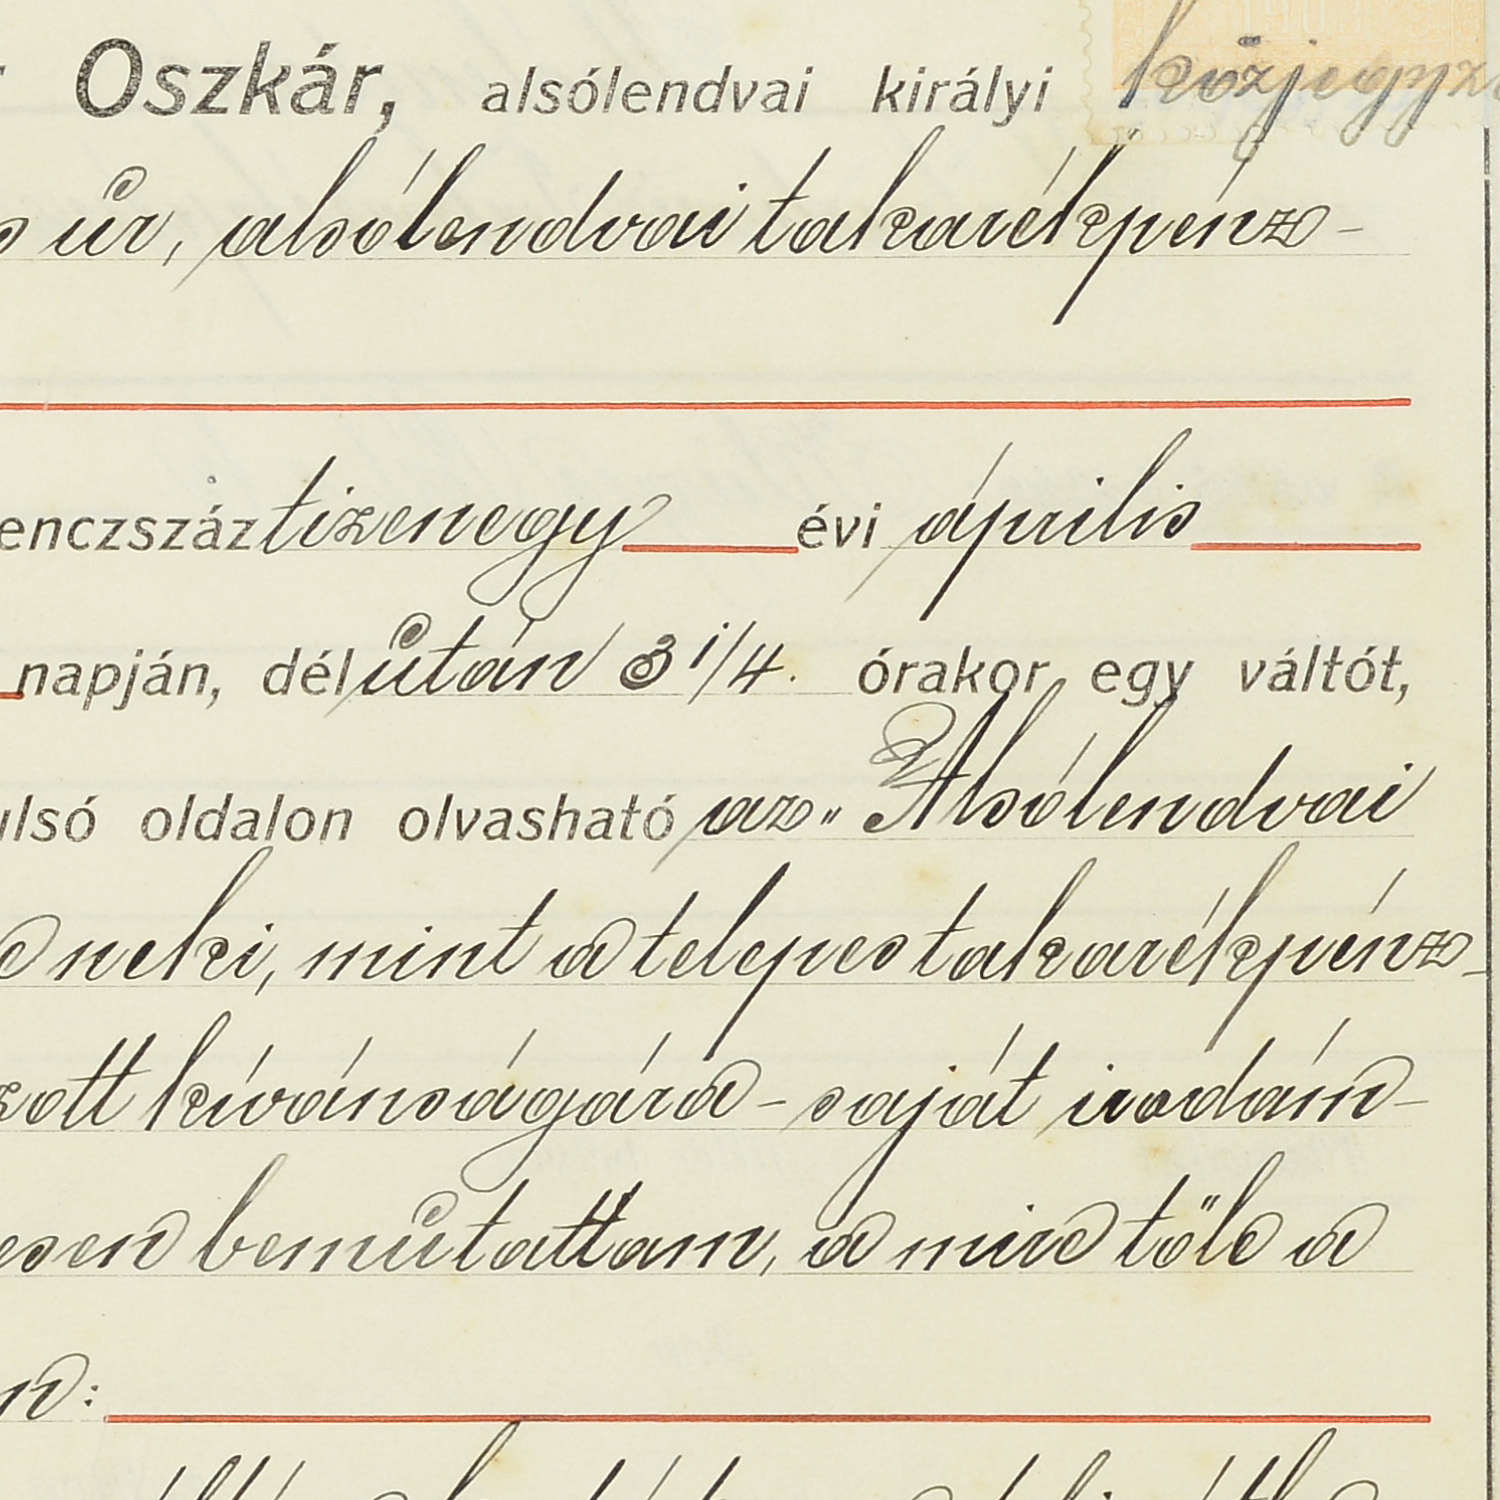 Oszkár, alsólendvai királyi közjegyző
úr, alsólendvai takarékpénz-
enczszáztizenegy évi április
napján, délután 3 1/4. órakor egy váltót,
ulsó oldalon olvasható az „Alsólendvai
neki, mint a telepes takarékpénz-
zott kívánságára - saját irodám-
esen bemutattam, a mire tőle a